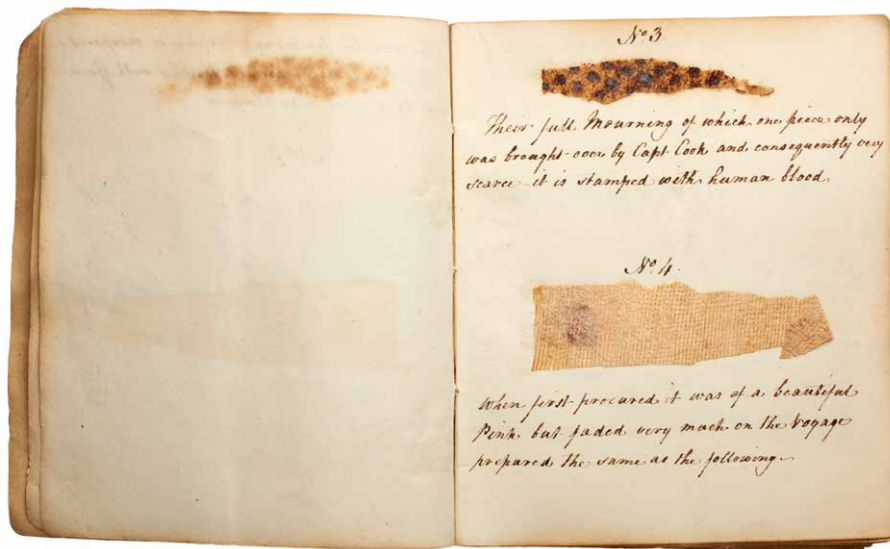 No 3
Their full Mourning of which one piece only
was brought over by Capt Cook and consequently very
scarce it is stamped with human blood
No 4.
When first procured it was of a beautiful
Pink but faded very much on the Voyage
prepared the same as the following.